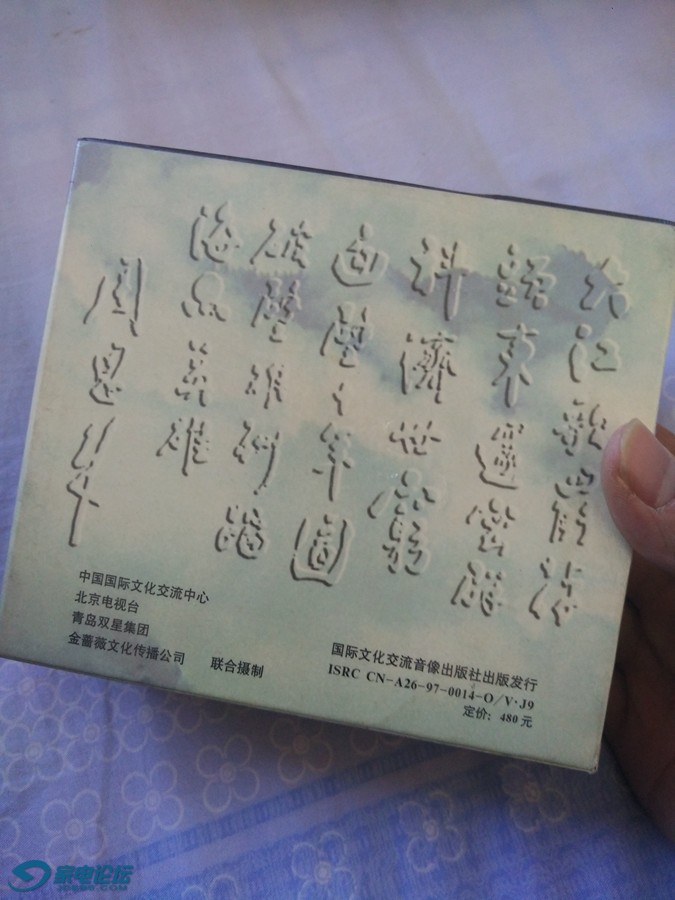 大江歌罷掉
頭東邃密群
科濟世窮
面壁十年圖
破壁难酬蹈
海亦英雄
周恩来
中国国际文化交流中心
北京电视台
青岛双星集团
金蔷薇文化传播公司 联合摄制
国际文化交流音像出版社出版发行
ISRC CN-A26-97-0014-O/V·J9
定价：480元
家电论坛
JDBBS.COM